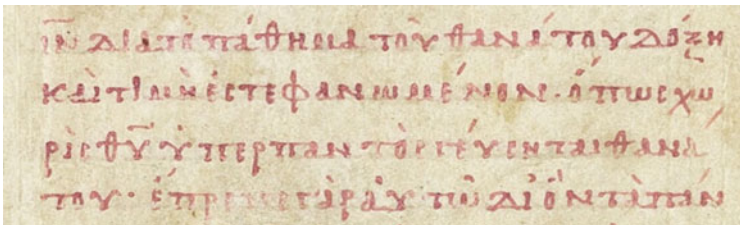 ῑν̄ διὰ τὸ πάθημα τοῦ θανάτου δόξη
καὶ τιμῆ ἐστεφανωμένον· ὅπως χω
ρὶς θ̄ῡ ὑπὲρ παντὸς γεύσηται θανά
του· ἔπρεπε γὰρ αὐτῶ δι' ὃν τὰ πάν